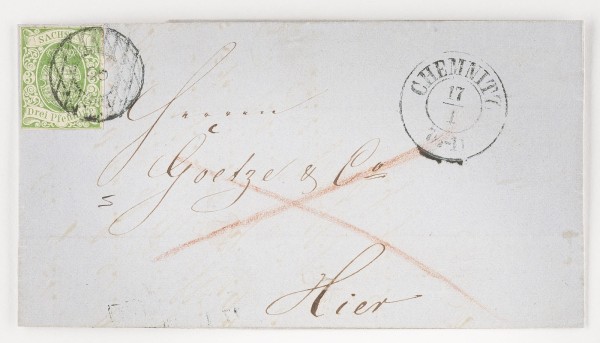 SACHSEN
Drei Pfennige
CHEMNITZ
17
1
Herren
Goetze & Co
Hier